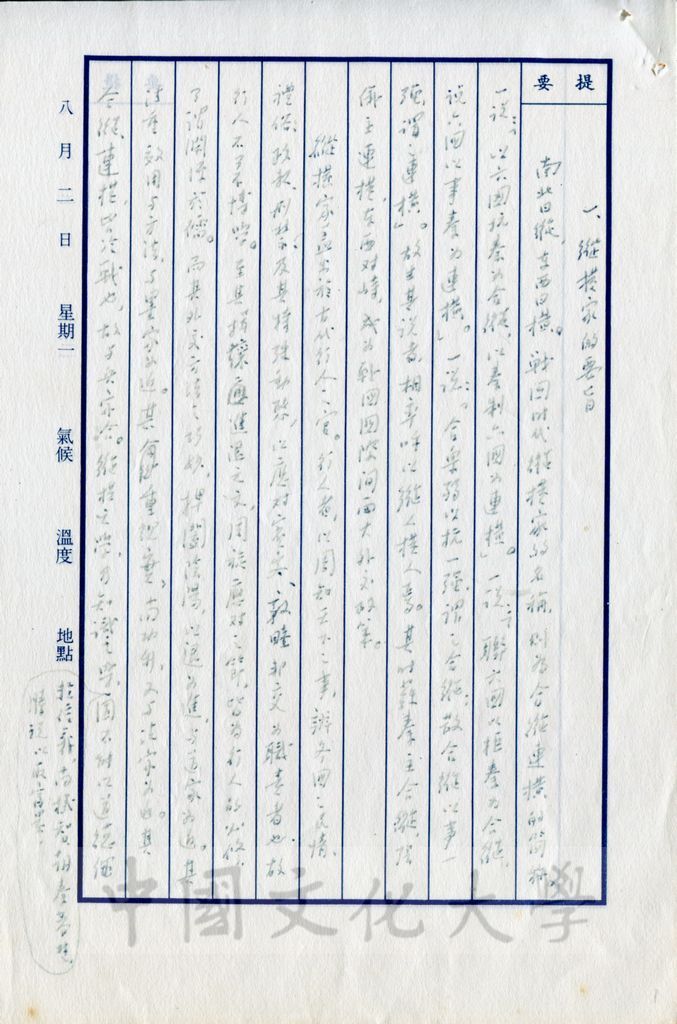 提要
一、縱橫家的要旨
南北曰縱,東西曰橫。戰國時代縱橫家的名稱,則為合縱連橫的簡稱
一說:「以六國抗秦為合縱,以秦制六國為連橫。」一說:「聯六國以拒秦為合縱,
說六國以事秦為連橫。」一說:「合眾弱以抗一強謂之合縱;散合縱以事一
強謂之連橫」。故主其說者,相率呼以縱人橫人焉。其時蘇秦主合縱,張
儀主連橫,東西對峙,成為戰國國際間兩大外交政策。
縱橫家蓋出於古代行人之官。行人者,以周知天下之事,辨各國之民情、
禮俗、政教、刑禁、及其特殊動態,以應對賓客、敦睦邦交為職責者也。故
行人不可不博學。至其揖讓進退之文,周旋應對之節,皆為行人所必修,
可謂淵源於儒。而其外交方法之巧妙,捭闔陰陽,以退為進,與道家為近。其
注重效用與方法,與墨家為近。其重現實,尚功利,又與法家為近。其
合縱、連橫,皆冷戰也,故與兵家合。縱橫之學,乃知識之學,固不能以道德繩
八月二日 星期一 氣候 溫度 地點
中國文化大學